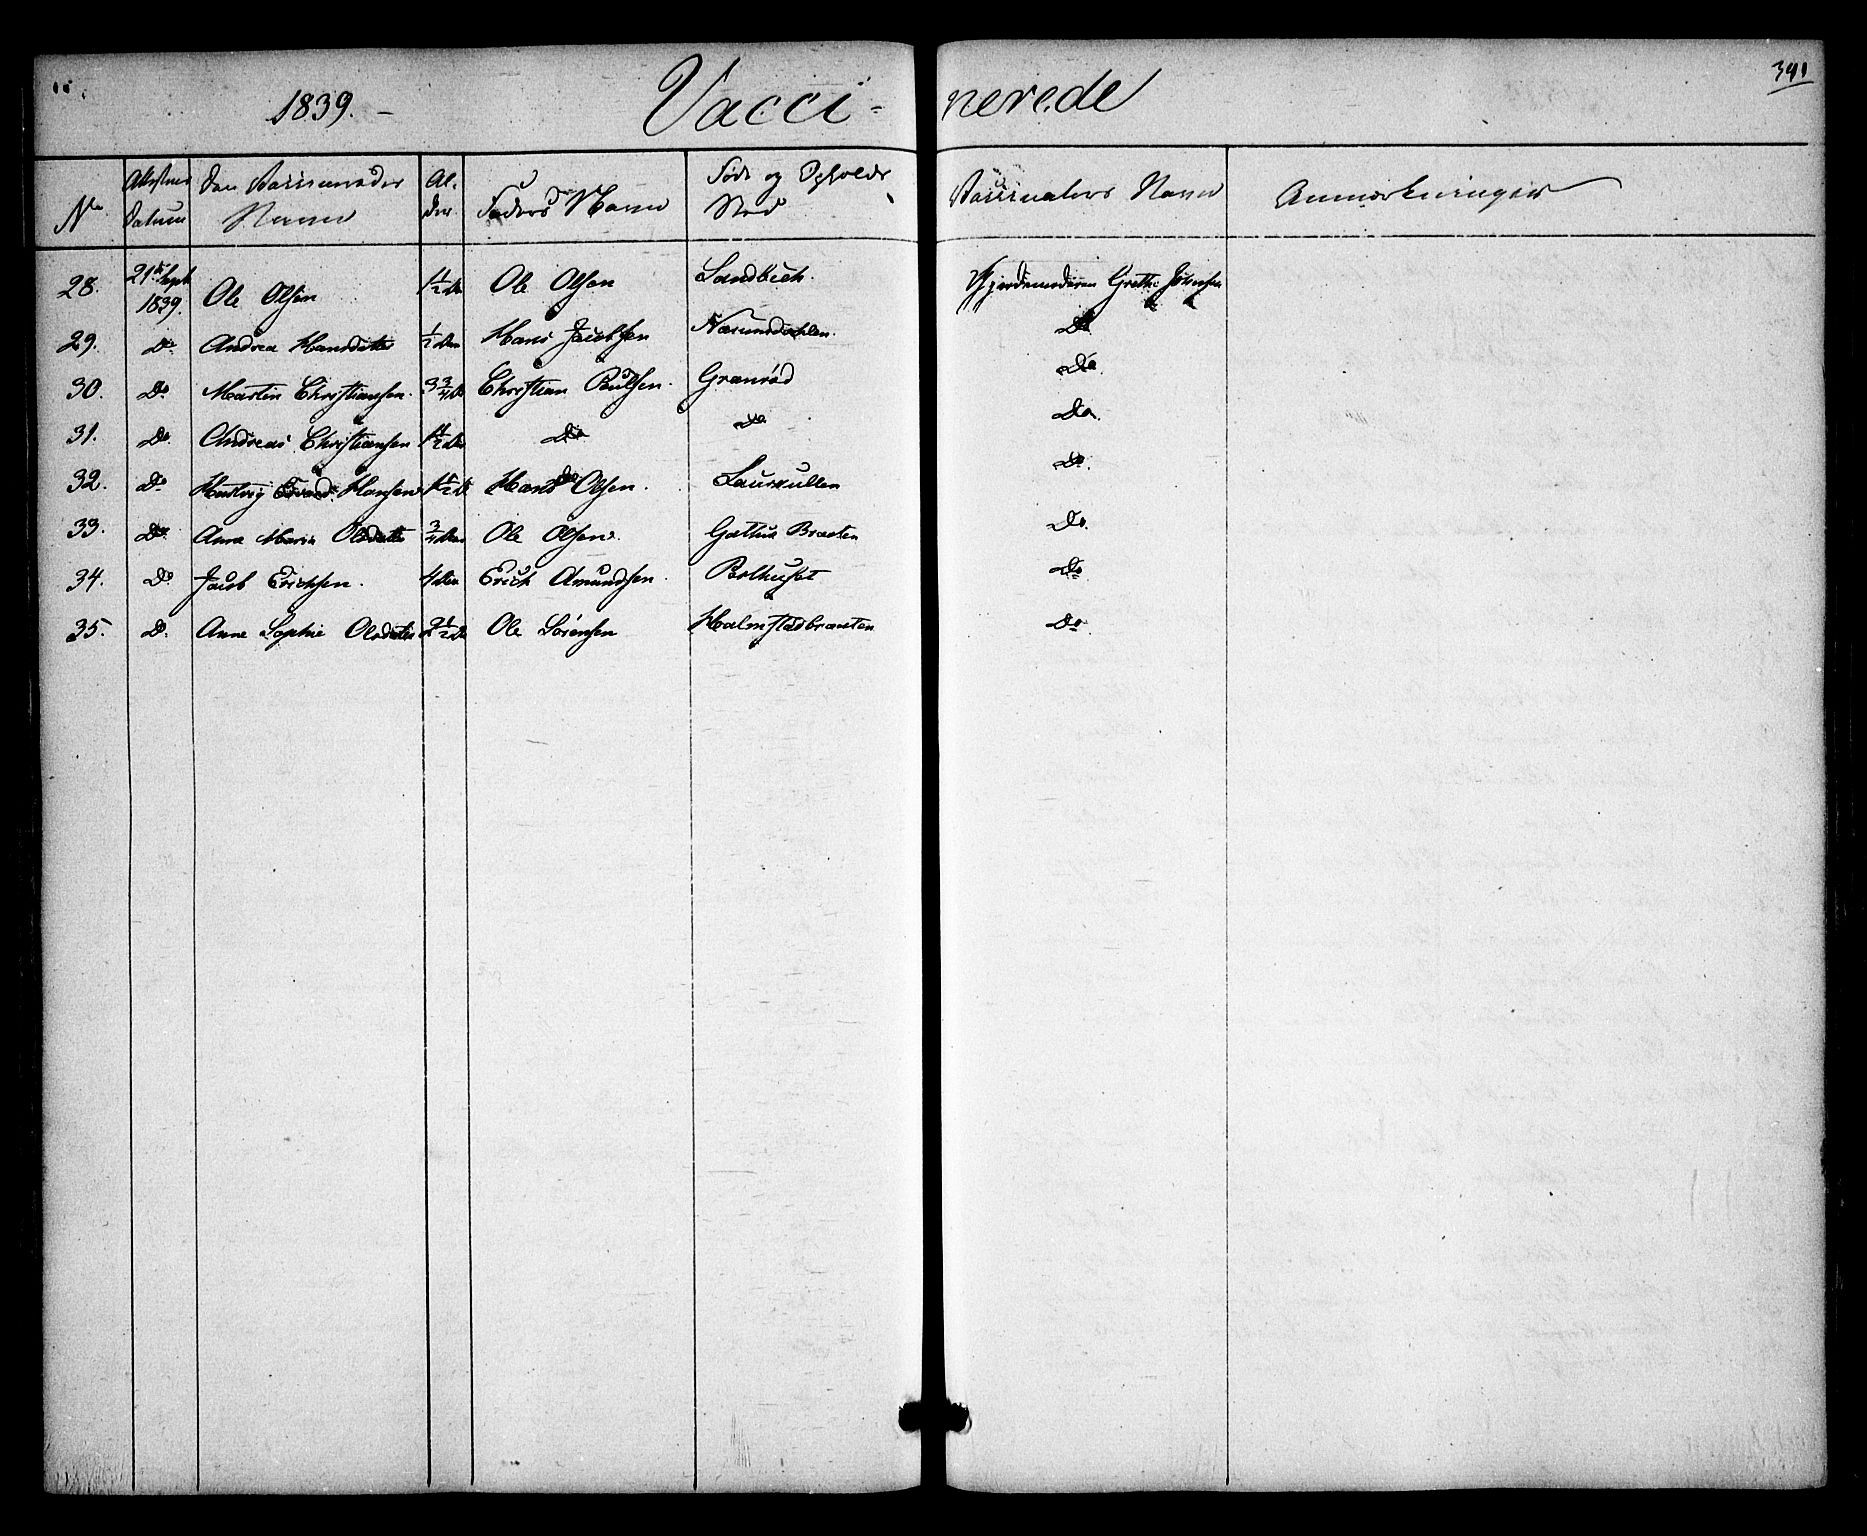 1839. Vacci- nerede 391
No Attestens Datum Den Vaccineredes Navn Alder Faders Navn Føde og Opholds Sted Vaccinateurs Navn Anmærkninger
28. 21de Sept 1839. Ole Olsen 1 1/2 Ole Olsen Sandbæch. Gjordemoderen Grethe
29. Do Andrea Hansdatter 1/2 Hans Jacobsen Do
30. Do Martin Christiansen. 3 3/4 Christian Poulsen. Granrød Do
31. Do Andreas Christiansen 1 1/2 Do Do Do
32. Do Hansen 1 1/2 Hans Olsen. Do
33. Do Anne Marie Olsdatter 3/4 Ole Olsen. Braaten Do
34. Do Jacob Erichsen. 4 Erich Amundsen. Do
35. Do Anne Sophie Olsdatter 2 1/2 Ole Sørensen Halmstadbraaten Do